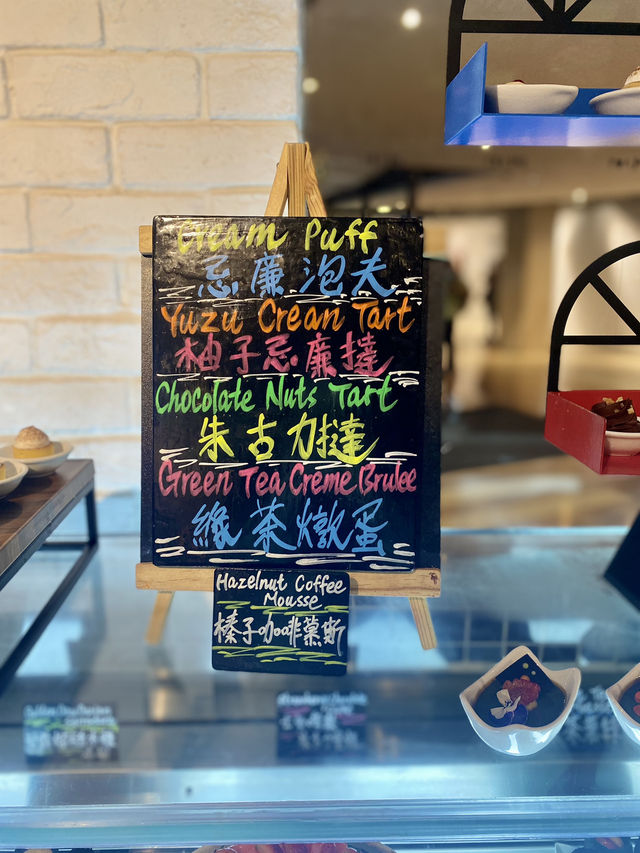 Cream Puff
忌廉泡夫
Yuzu Crean Tart
柚子忌廉撻
Chocolate Nuts Tart
朱古力撻
Green Tea Créme Brulee
綠茶燉蛋
Hazelnut Coffee
Mousse
榛子咖啡慕斯